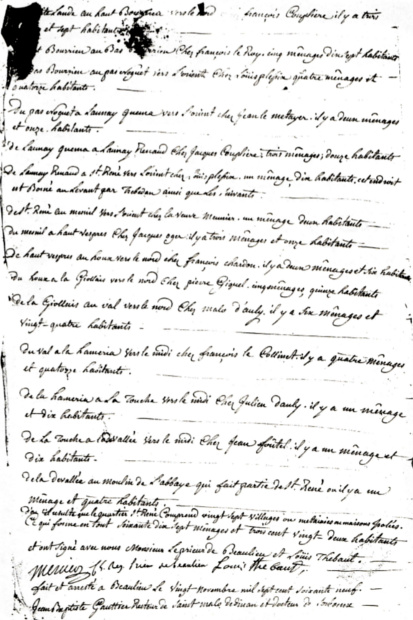 Lande au haut Bourrien vers le nord françois Couplierre il y a trois
et sept habitans
Bourrien au bas Bourrien Chez françois le Roy, cinq ménages dix sept habitants
bas Bourrien au pas Noguet vers l'orient Chez Louis plesix quatre ménages et
quatorze habitants.
Du pas Noguet a Launay quema vers l'orient chez jean le metayer. il y a deux ménages
et onze habitants.
de Launay quema a Launay Renaud Chez Jacques Couplierre, trois ménages, douze habitants
de Launay Renaud a St René vers l'orient chez Louis plesix. un ménage, dix habitants, cet endroit
est Borné au Levant par Trebedan ainsi que les Suivants.
de St René au mesnil vers l'orient chez la veuve Meunier. un ménage deux habitants
du mesnil a haut vespres Chez Jacques oger. il y a trois ménages et onze habitants
de haut vespres au houx vers le nord chez françois chardon. il y a deux ménages et six habitants
du houx a la Giollais vers le nord chez pierre Gicquel. cinq ménages, quinze habitants
de la Giollais au val vers le nord Chez malo d'auly. il y a Six ménages et
vingt-quatre habitants -
du val a la hameria vers le midi chez françois le Collinet il y a quatre ménages
et quatorze habitants.
de la hameria a La Touche vers le midi Chez Julien Dauly. il y a un ménage
et dix habitants.
de La Touche a Ladavallée vers le midi Chez Jean. il y a un ménage et
dix habitants.
de la devallée au moulin de l'abbaye qui fait partie de St René ou il y a un
ménage et quatre habitants.
d'ou il resulte que le quartier St René Comprend vingt sept villages ou metairies ou maisons isolées.
Ce qui forme en tout Soixante dix Sept ménages et trois cent vingt Deux habitants
et ont signé avec nous Monsieur Le prieur de Beaulieu et Louis Thebaut.
prieur de beaulieu Louis thebaut.
fait et arresté a Beaulieu Le vingt Novembre mil Sept cent soixante neuf.
Jean Baptiste Gaultier Recteur de Saint malo de dinan et docteur de Sorbonne